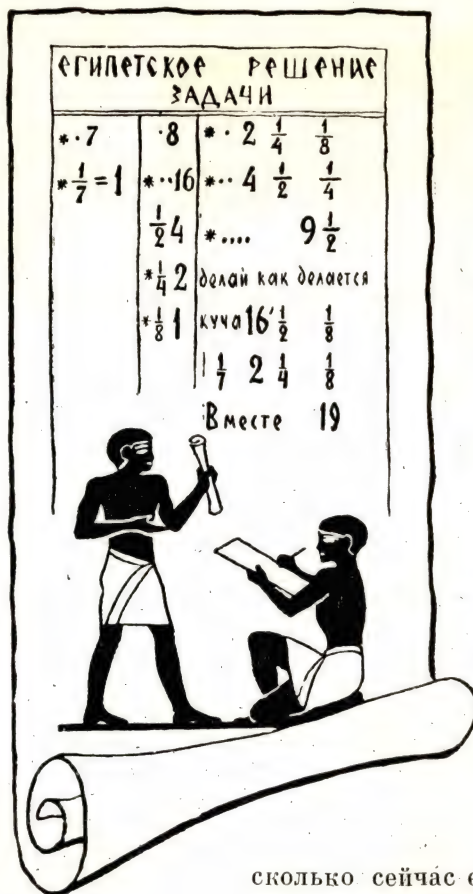 ЕГИПЕТСКОЕ РЕШЕНИЕ
ЗАДАЧИ
*·7 ·8 *·· 2 1/4 1/8
*1/7=1 *··16 *·· 4 1/2 1/4
1/2 4 *.... 9 1/2
*1/4 2 делай как делается
*1/8 1 куча 16' 1/2 1/8
| 1/7 2 1/4 1/8
Вместе 19
сколько сейчас